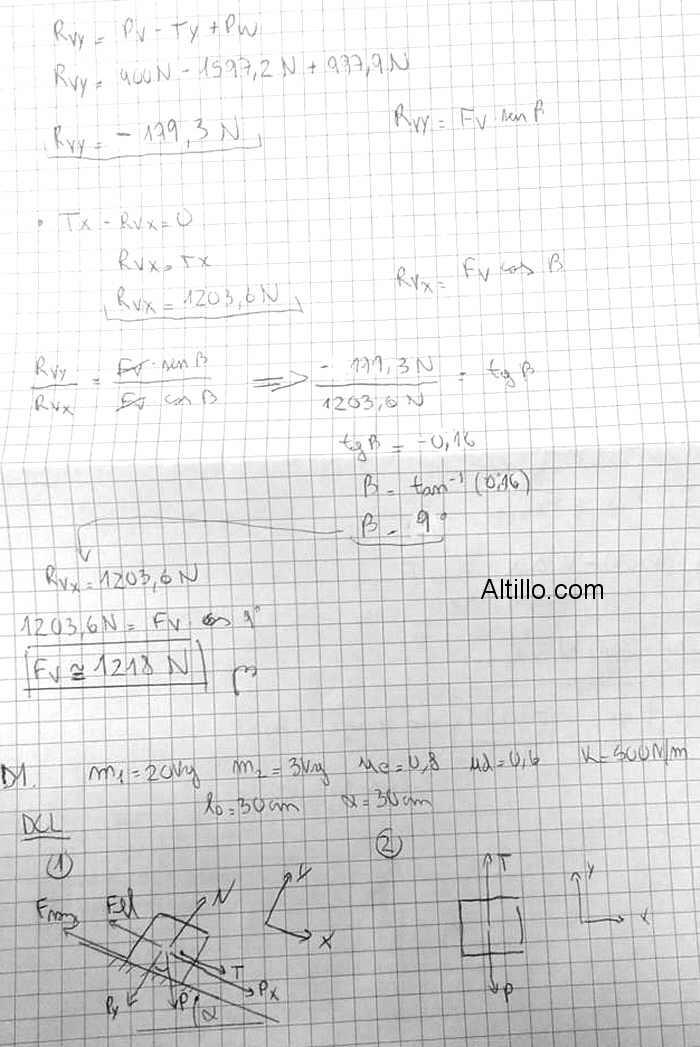 Rvy = Pv - Ty + Pw
Rvy = 400N - 1597,2N + 997,9N
Rvy = - 199,3 N
Rvy = Fv . sen β
• Tx - Rvx = 0
Rvx = Tx
Rvx = 1203,6 N
Rvx = Fv cos β
Rvy / Rvx = Fv . sen β / Fv cos β => - 199,3 N / 1203,6 N = tg β
tg β = -0,16
β = tan⁻¹ (0,16)
β = 9°
Rvx = 1203,6 N
1203,6 N = Fv cos 9°
Fv ≅ 1218 N
Altillo.com
D1. m1 = 20kg m2 = 3kg μe = 0,8 μd = 0,6 K = 500N/m
l0 = 30cm α = 30cm
DCL
① ②
Froz Fel N Y X
T Px
Py P α
T Y X
P